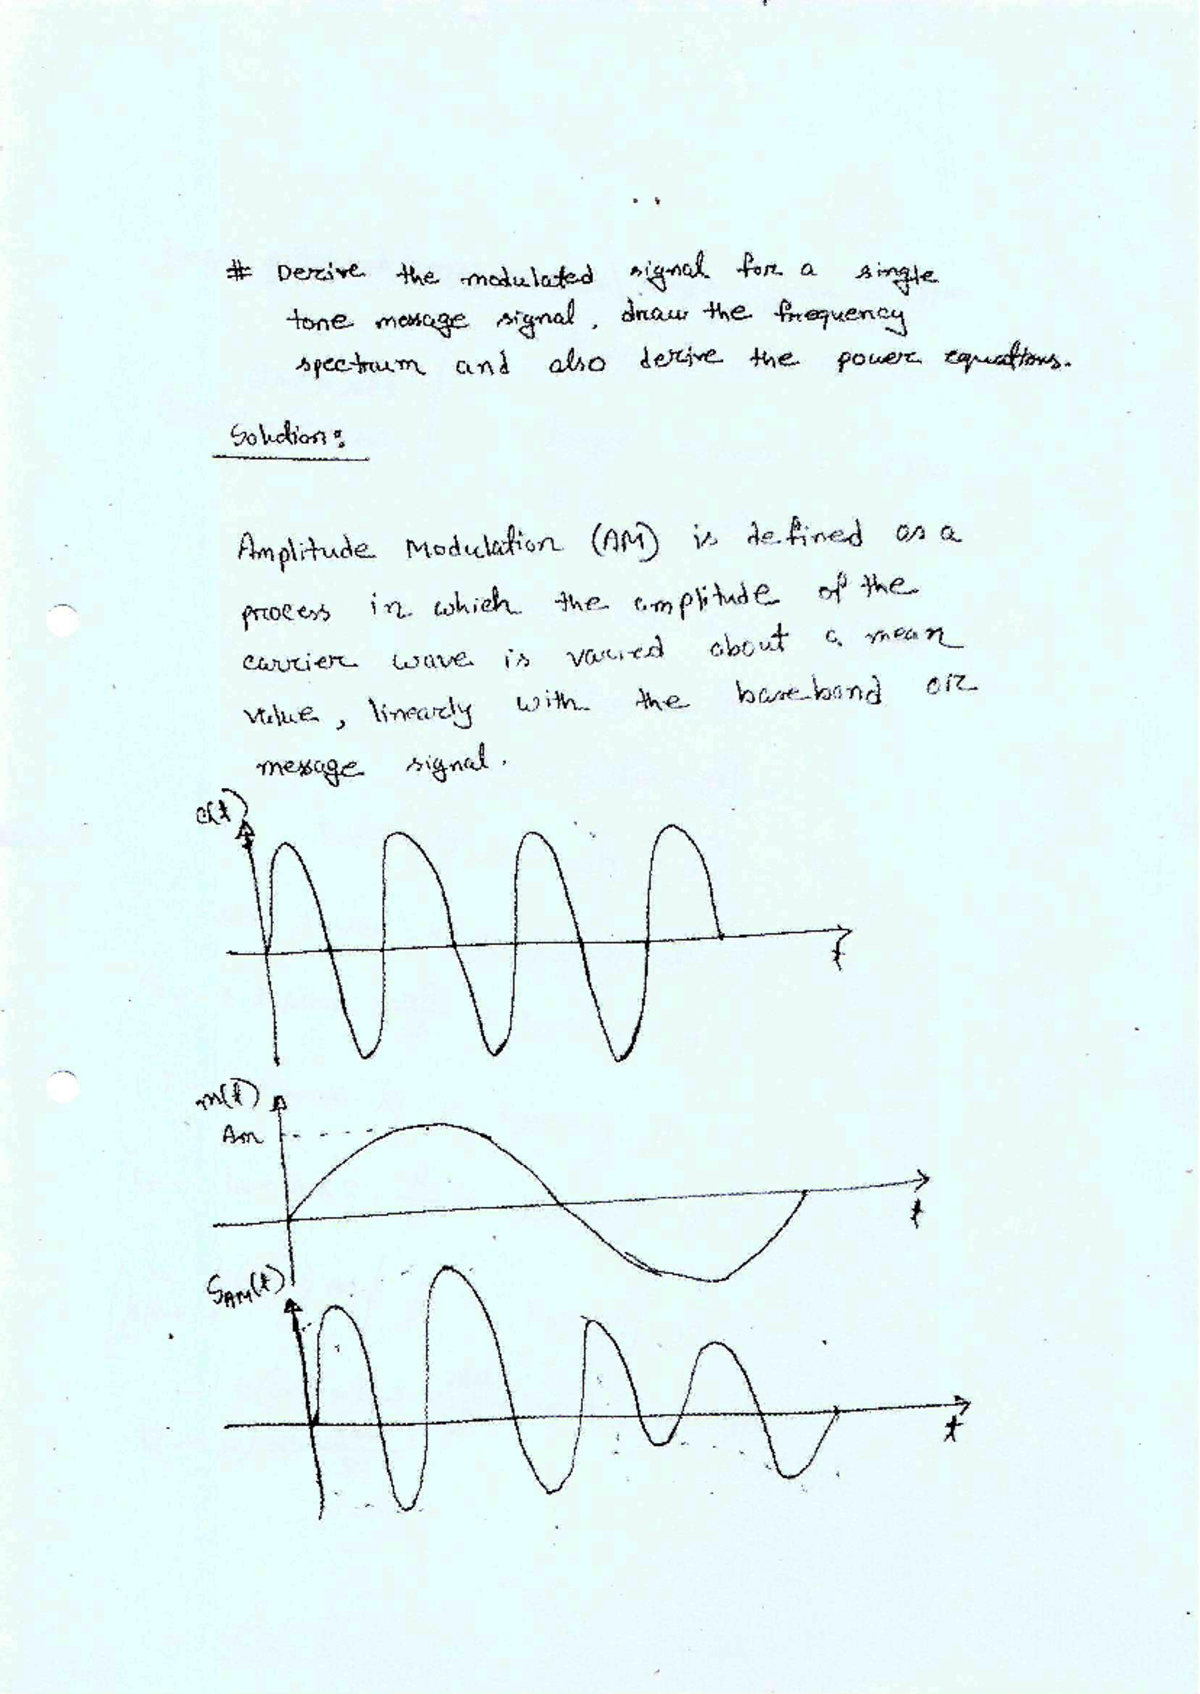 # Derive the modulated signal for a single
tone message signal, draw the frequency
spectrum and also derive the power equations.
Solution:
Amplitude Modulation (AM) is defined as a
process in which the amplitude of the
carrier wave is varied about a mean
value, linearly with the baseband or
message signal.
c(t)
t
m(t)
Am
t
SAM(t)
t